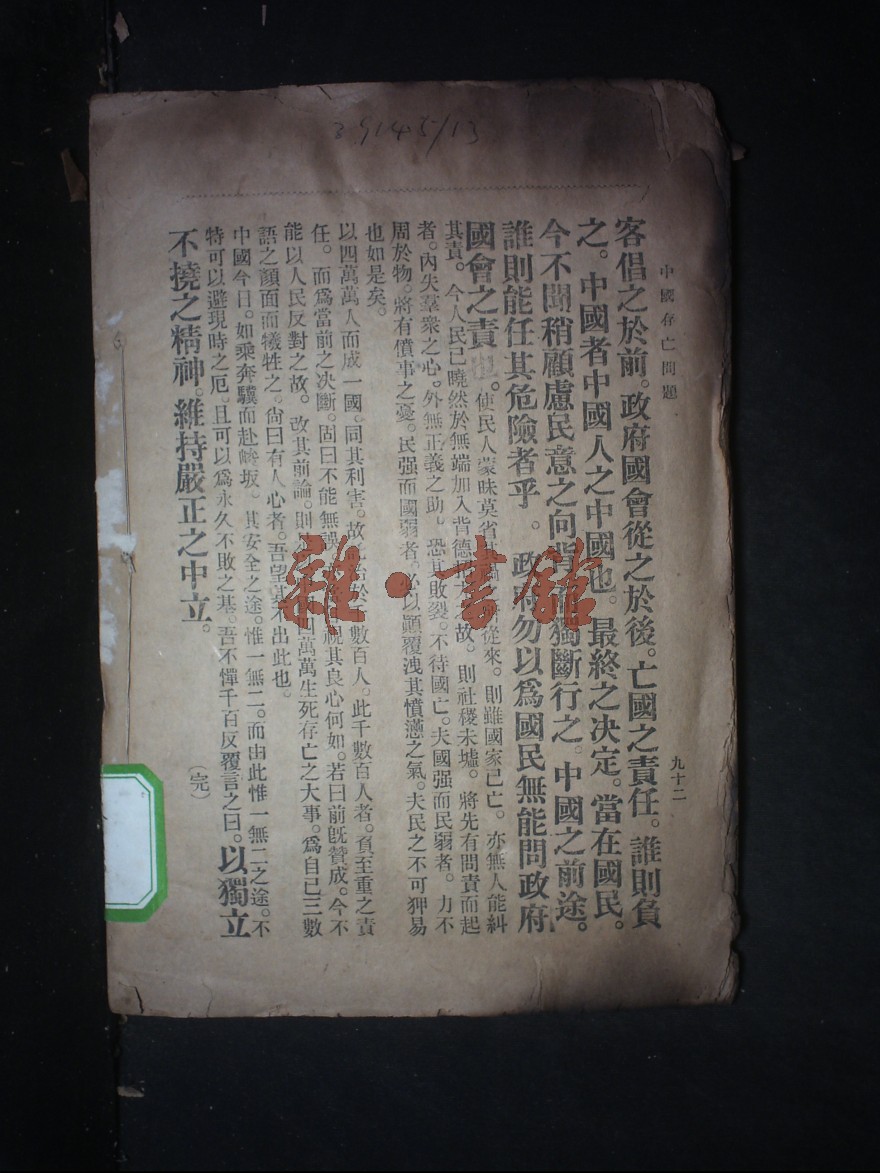 中國存亡問題
九十二
客倡之於前。政府國會從之於後。亡國之責任。誰則負
之。中國者中國人之中國也。最終之决定。當在國民。
今不聞稍顧慮民意之向背而獨斷行之。中國之前途。
誰則能任其危險者乎。政府勿以爲國民無能問政府
國會之責也。使民人蒙昧莫省從來。則雖國家已亡。亦無人能糾
其責。今人民已曉然於無端加入背德之故。則社稷未墟。將先有問責而起
者。內失羣衆之心。外無正義之助。恐其敗裂。不待國亡。夫國强而民弱者。力不
周於物。將有僨事之憂。民强而國弱者。必以顚覆洩其憤懣之氣。夫民之不可狎易
也如是矣。
以四萬萬人而成一國。同其利害。故託治於千數百人。此千數百人者。負至重之責
任。而爲當前之决斷。固曰不能無誤視其良心何如。若曰前旣贊成。今不
能以人民反對之故。改其前論。則四萬萬生死存亡之大事。爲自己三數
語之顏面而犧牲之。尙曰有人心者。吾望其不出此也。
中國今日。如乘奔驥而赴峻坂。其安全之途。惟一無二。而由此惟一無二之途。不
特可以避現時之厄。且可以爲永久不敗之基。吾不憚千百反覆言之曰。以獨立
不撓之精神。維持嚴正之中立。
(完)
雜·書館